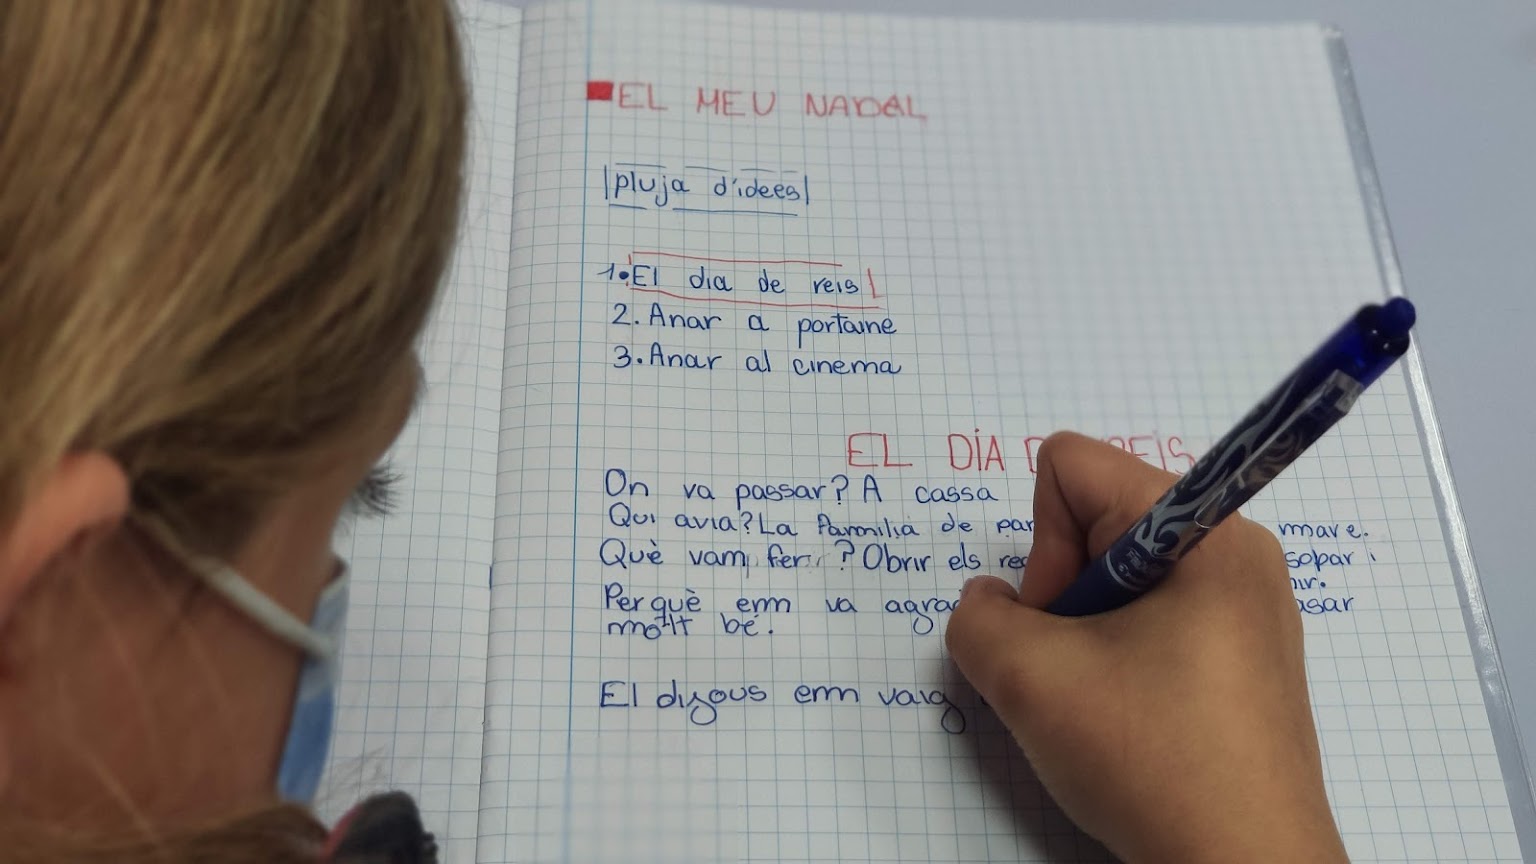 EL MEU NADAL
pluja d'idees
1. El dia de reis
2. Anar a portaine
3. Anar al cinema
EL DÍA REIS
On va passar? A cassa
Qui avia? La Familia de par mare.
Què vam fer ? Obrir els sopar i
Per què em va agrad
molt bé.
El dijous em vaig